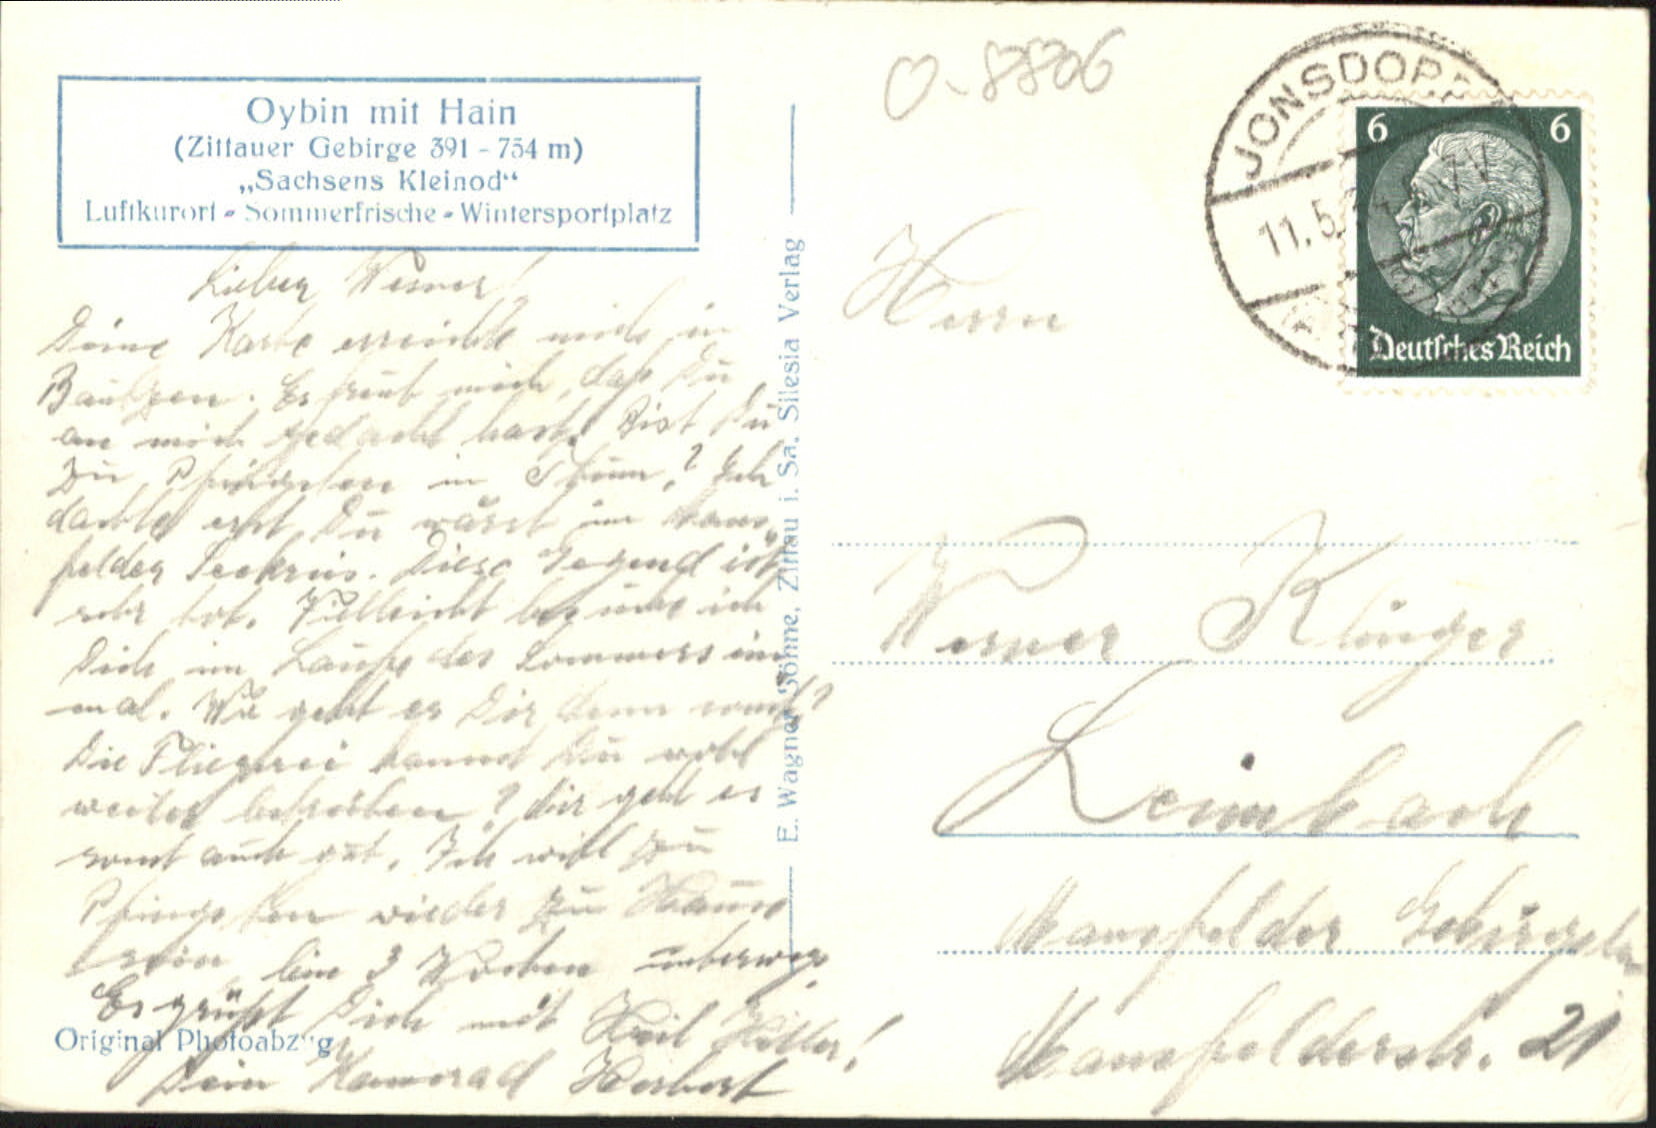 O-8806
Oybin mit Hain
(Zittauer Gebirge 391 - 754 m)
„Sachsens Kleinod“
Luftkurort - Sommerfrische - Wintersportplatz
JONSDORF
11.5.
6 6
Deutsches Reich
Lieber Werner!
Deine Karte erreichte mich in
Bautzen. Es freut mich, daß Du
an mich gedacht hast. Bist Du
zu Pfingsten in ? Ich
dachte erst, Du wärst im Mans-
felder Seekreis. Diese Gegend ist
sehr rot. Vielleicht besuche ich
Dich im Laufe des Sommers ein-
mal. Wie geht es Dir denn sonst?
Die Fliegerei kannst Du wohl
weiter betreiben? Mir geht es
sonst auch gut. Ich will zu
Pfingsten wieder zu Hause
sein. Bin 3 Wochen unterwegs.
Es grüßt Dich mit Heil Hitler!
Dein Kamerad Herbert
Original Photoabzug
E. Wagner Söhne, Zittau i. Sa. Silesia Verlag
Herrn
Werner Klüger
Leimbach
Mansfelder Gebirgskr.
Mansfelderstr. 21